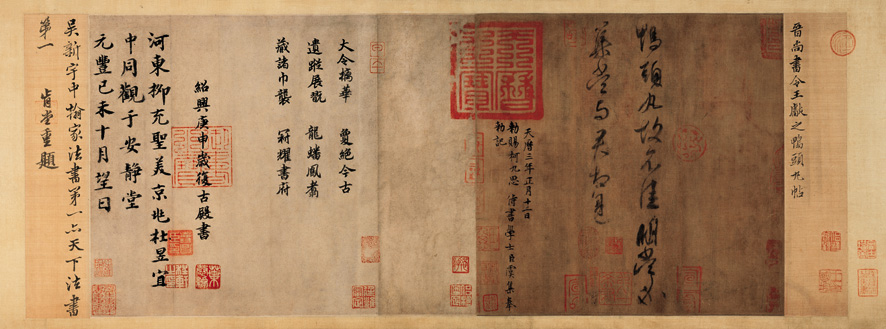 晉尚書令王獻之鴨頭丸帖
鴨頭丸故不佳明當必
集當與君相見
天曆三年正月十二日
敕賜柯九思侍書學士臣虞集奉
敕記
大令摛華夐絕今古
遺蹤展翫龍蟠鳳翥
藏諸巾襲冠耀書府
紹興庚申歲復古殿書
河東柳充聖美京兆杜昱宜
中同觀于安靜堂
元豐己未十月望日
吳新宇中翰家法書第一亦天下法書
第一 肯堂重題